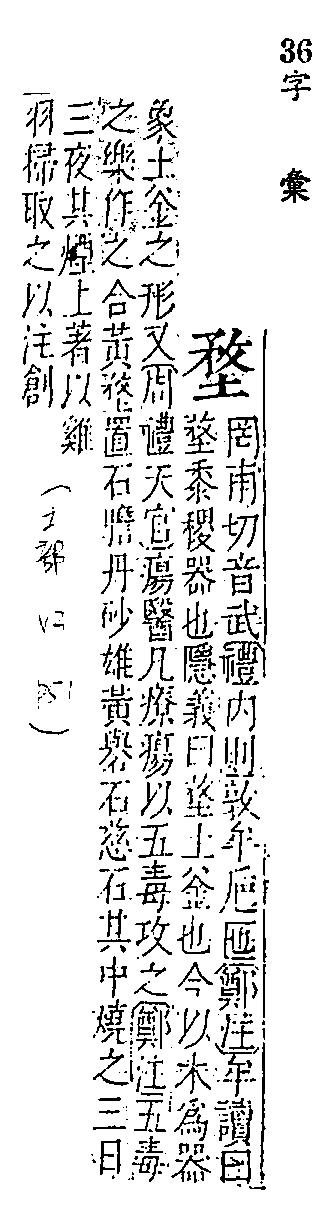 36字彙
堥
罔甫切音武禮內則敦牟卮匜鄭注牟讀曰
堥黍稷器也隱義曰堥土釜也今以木為器
象土釜之形又周禮天官瘍醫凡療瘍以五毒攻之鄭注五毒
之藥作之合黃堥置石膽丹砂雄黃礜石慈石其中燒之三日
三夜其煙上著以雞
羽掃取之以注創
(土部 V2 p51)